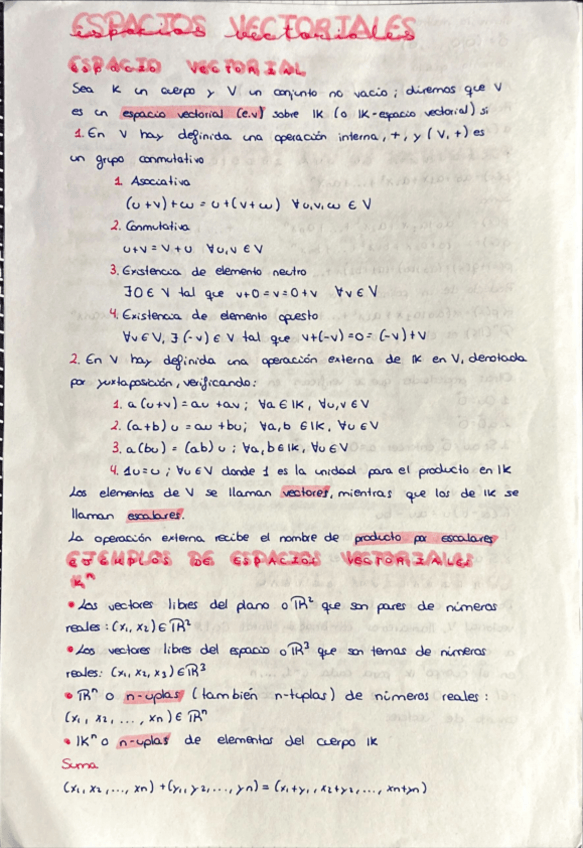 ESPACIOS VECTORIALES
ESPACIO VECTORIAL
Sea K un cuerpo y V un conjunto no vacío; diremos que V
es un espacio vectorial (e.v) sobre IK (o IK-espacio vectorial) si
1. En V hay definida una operación interna, +, y (V, +) es
un grupo conmutativo
1. Asociativa
(u+v)+w = u+(v+w) ∀u,v,w ∈ V
2. Conmutativa
u+v = v+u ∀u,v ∈ V
3. Existencia de elemento neutro
∃0 ∈ V tal que v+0=v=0+v ∀v ∈ V
4. Existencia de elemento opuesto
∀v ∈ V, ∃ (-v) ∈ V tal que v+(-v)=0= (-v)+v
2. En V hay definida una operación externa de IK en V, denotada
por yuxtaposición, verificando:
1. a(u+v) = au +av ; ∀a ∈ IK, ∀u,v ∈ V
2. (a+b) u = au +bu; ∀a,b ∈ IK, ∀u ∈ V
3. a(bu) = (ab) u ; ∀a,b ∈ IK, ∀u ∈ V
4. 1u=u ; ∀u ∈ V donde 1 es la unidad para el producto en IK
Los elementos de V se llaman vectores, mientras que los de IK se
llaman escalares.
La operación externa recibe el nombre de producto por escalares
EJEMPLOS DE ESPACIOS VECTORIALES
Kⁿ
• Los vectores libres del plano o ℝ² que son pares de números
reales: (x₁, x₂) ∈ ℝ²
• Los vectores libres del espacio o ℝ³ que son ternas de números
reales: (x₁, x₂, x₃) ∈ ℝ³
• ℝⁿ o n-uplas (también n-tuplas) de números reales:
(x₁, x₂, ..., xn) ∈ ℝⁿ
• IKⁿ o n-uplas de elementos del cuerpo IK
Suma
(x₁, x₂, ..., xn) + (y₁, y₂, ..., yn) = (x₁+y₁, x₂+y₂, ..., xn+yn)